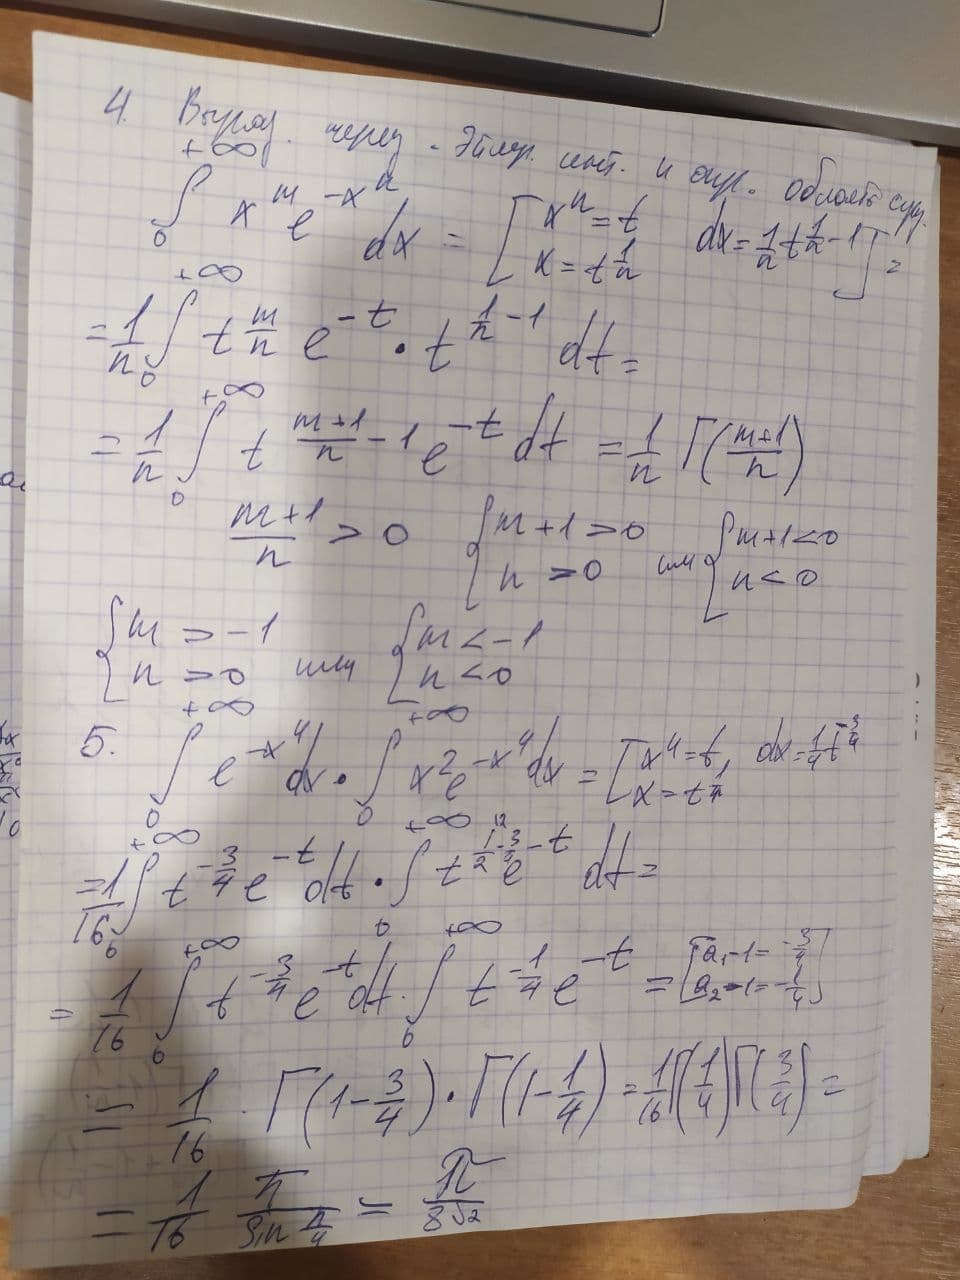 4. Выраз. через Эйлер. инт. и опр. область сущ.
∫₀^{+∞} x^m e^{-x^n} dx = [x^n = t x = t^{1/n} dx = 1/n t^{1/n - 1}] =
= 1/n ∫₀^{+∞} t^{m/n} e^{-t} · t^{1/n - 1} dt =
= 1/n ∫₀^{+∞} t^{(m+1)/n - 1} e^{-t} dt = 1/n Γ((m+1)/n)
(m+1)/n > 0 {m+1 > 0 n > 0 или {m+1 < 0 n < 0
{m > -1 n > 0 или {m < -1 n < 0
5. ∫₀^{+∞} e^{-x^4} dx · ∫₀^{+∞} x^2 e^{-x^4} dx = [x^4 = t, x = t^{1/4} dx = 1/4 t^{-3/4}
= 1/16 ∫₀^{+∞} t^{-3/4} e^{-t} dt · ∫₀^{+∞} t^{1/2 - 3/4} e^{-t} dt =
= 1/16 ∫₀^{+∞} t^{-3/4} e^{-t} dt · ∫₀^{+∞} t^{-1/4} e^{-t} = [a₁-1 = -3/4 a₂-1 = -1/4]
= 1/16 · Γ(1 - 3/4) · Γ(1 - 1/4) = 1/16 Γ(1/4) Γ(3/4) =
= 1/16 π/sin π/4 = π/8√2